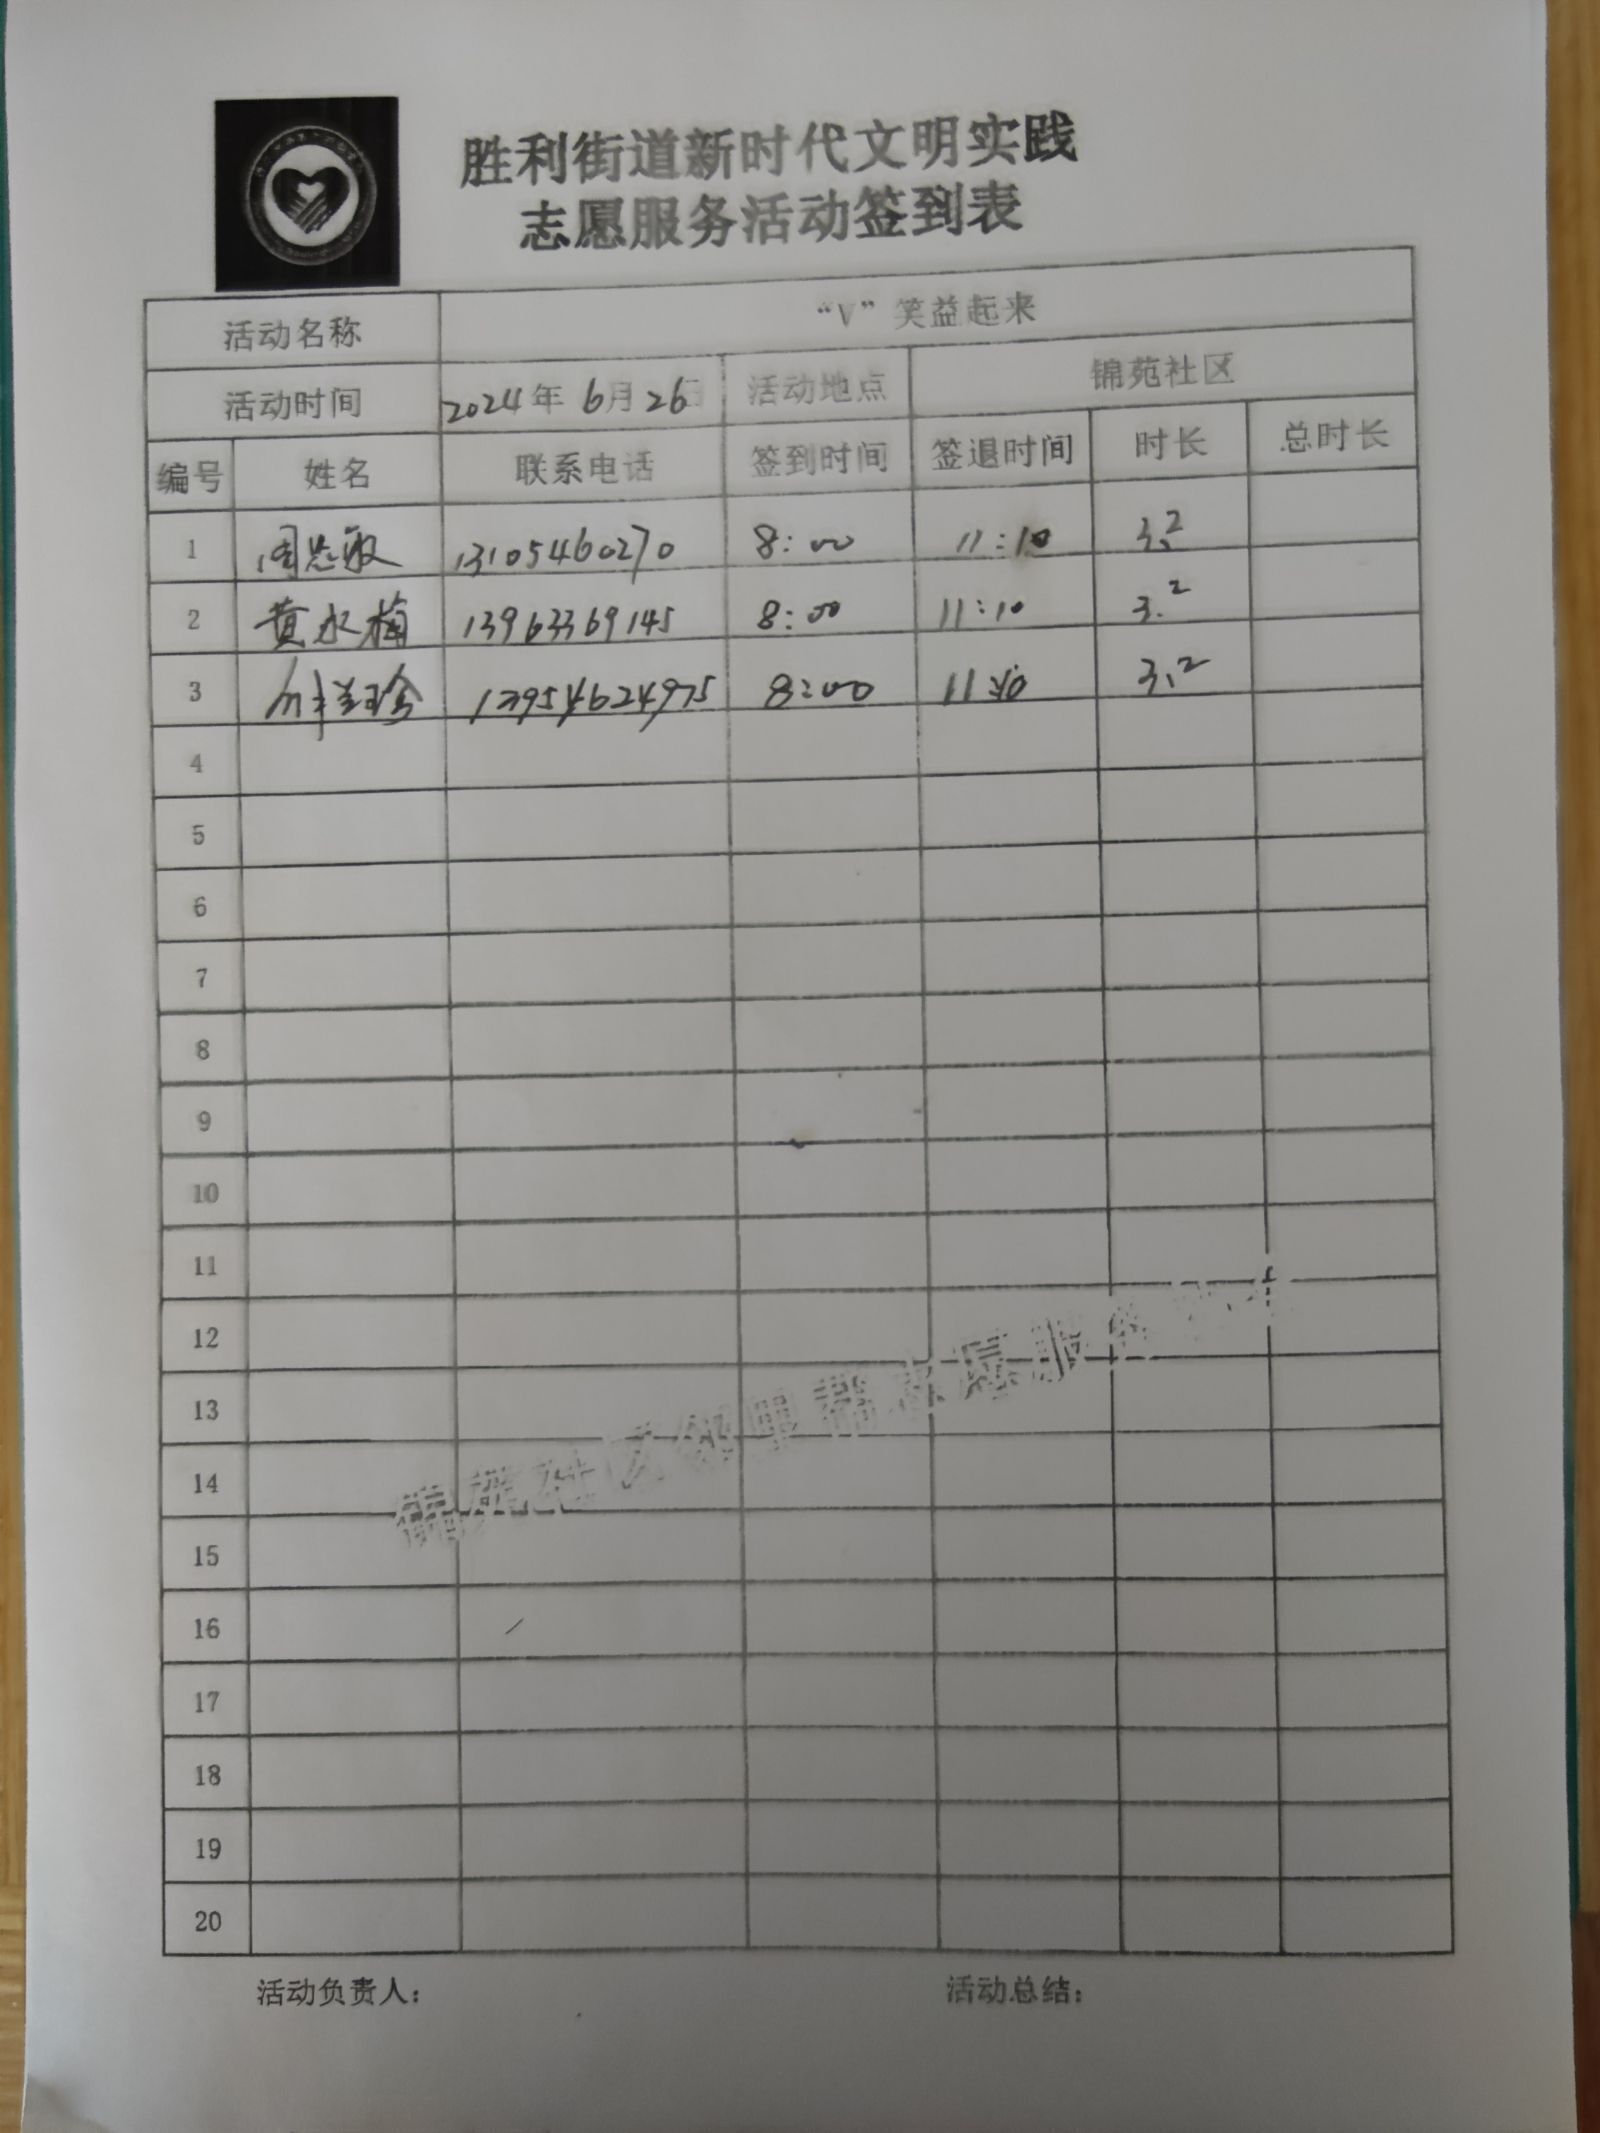 胜利街道新时代文明实践
志愿服务活动签到表
活动名称 “V”笑益起来
活动时间 2024年 6月 26日 活动地点 锦苑社区
编号 姓名 联系电话 签到时间 签退时间 时长 总时长
1 周志敏 13105460270 8:00 11:10 3.2
2 黄永梅 13963369145 8:00 11:10 3.2
3 13954624975 8:00 11:10 3.2
4
5
6
7
8
9
10
11
12
13
14
15
16
17
18
19
20
锦苑社区邻里帮志愿服务
活动负责人: 活动总结: